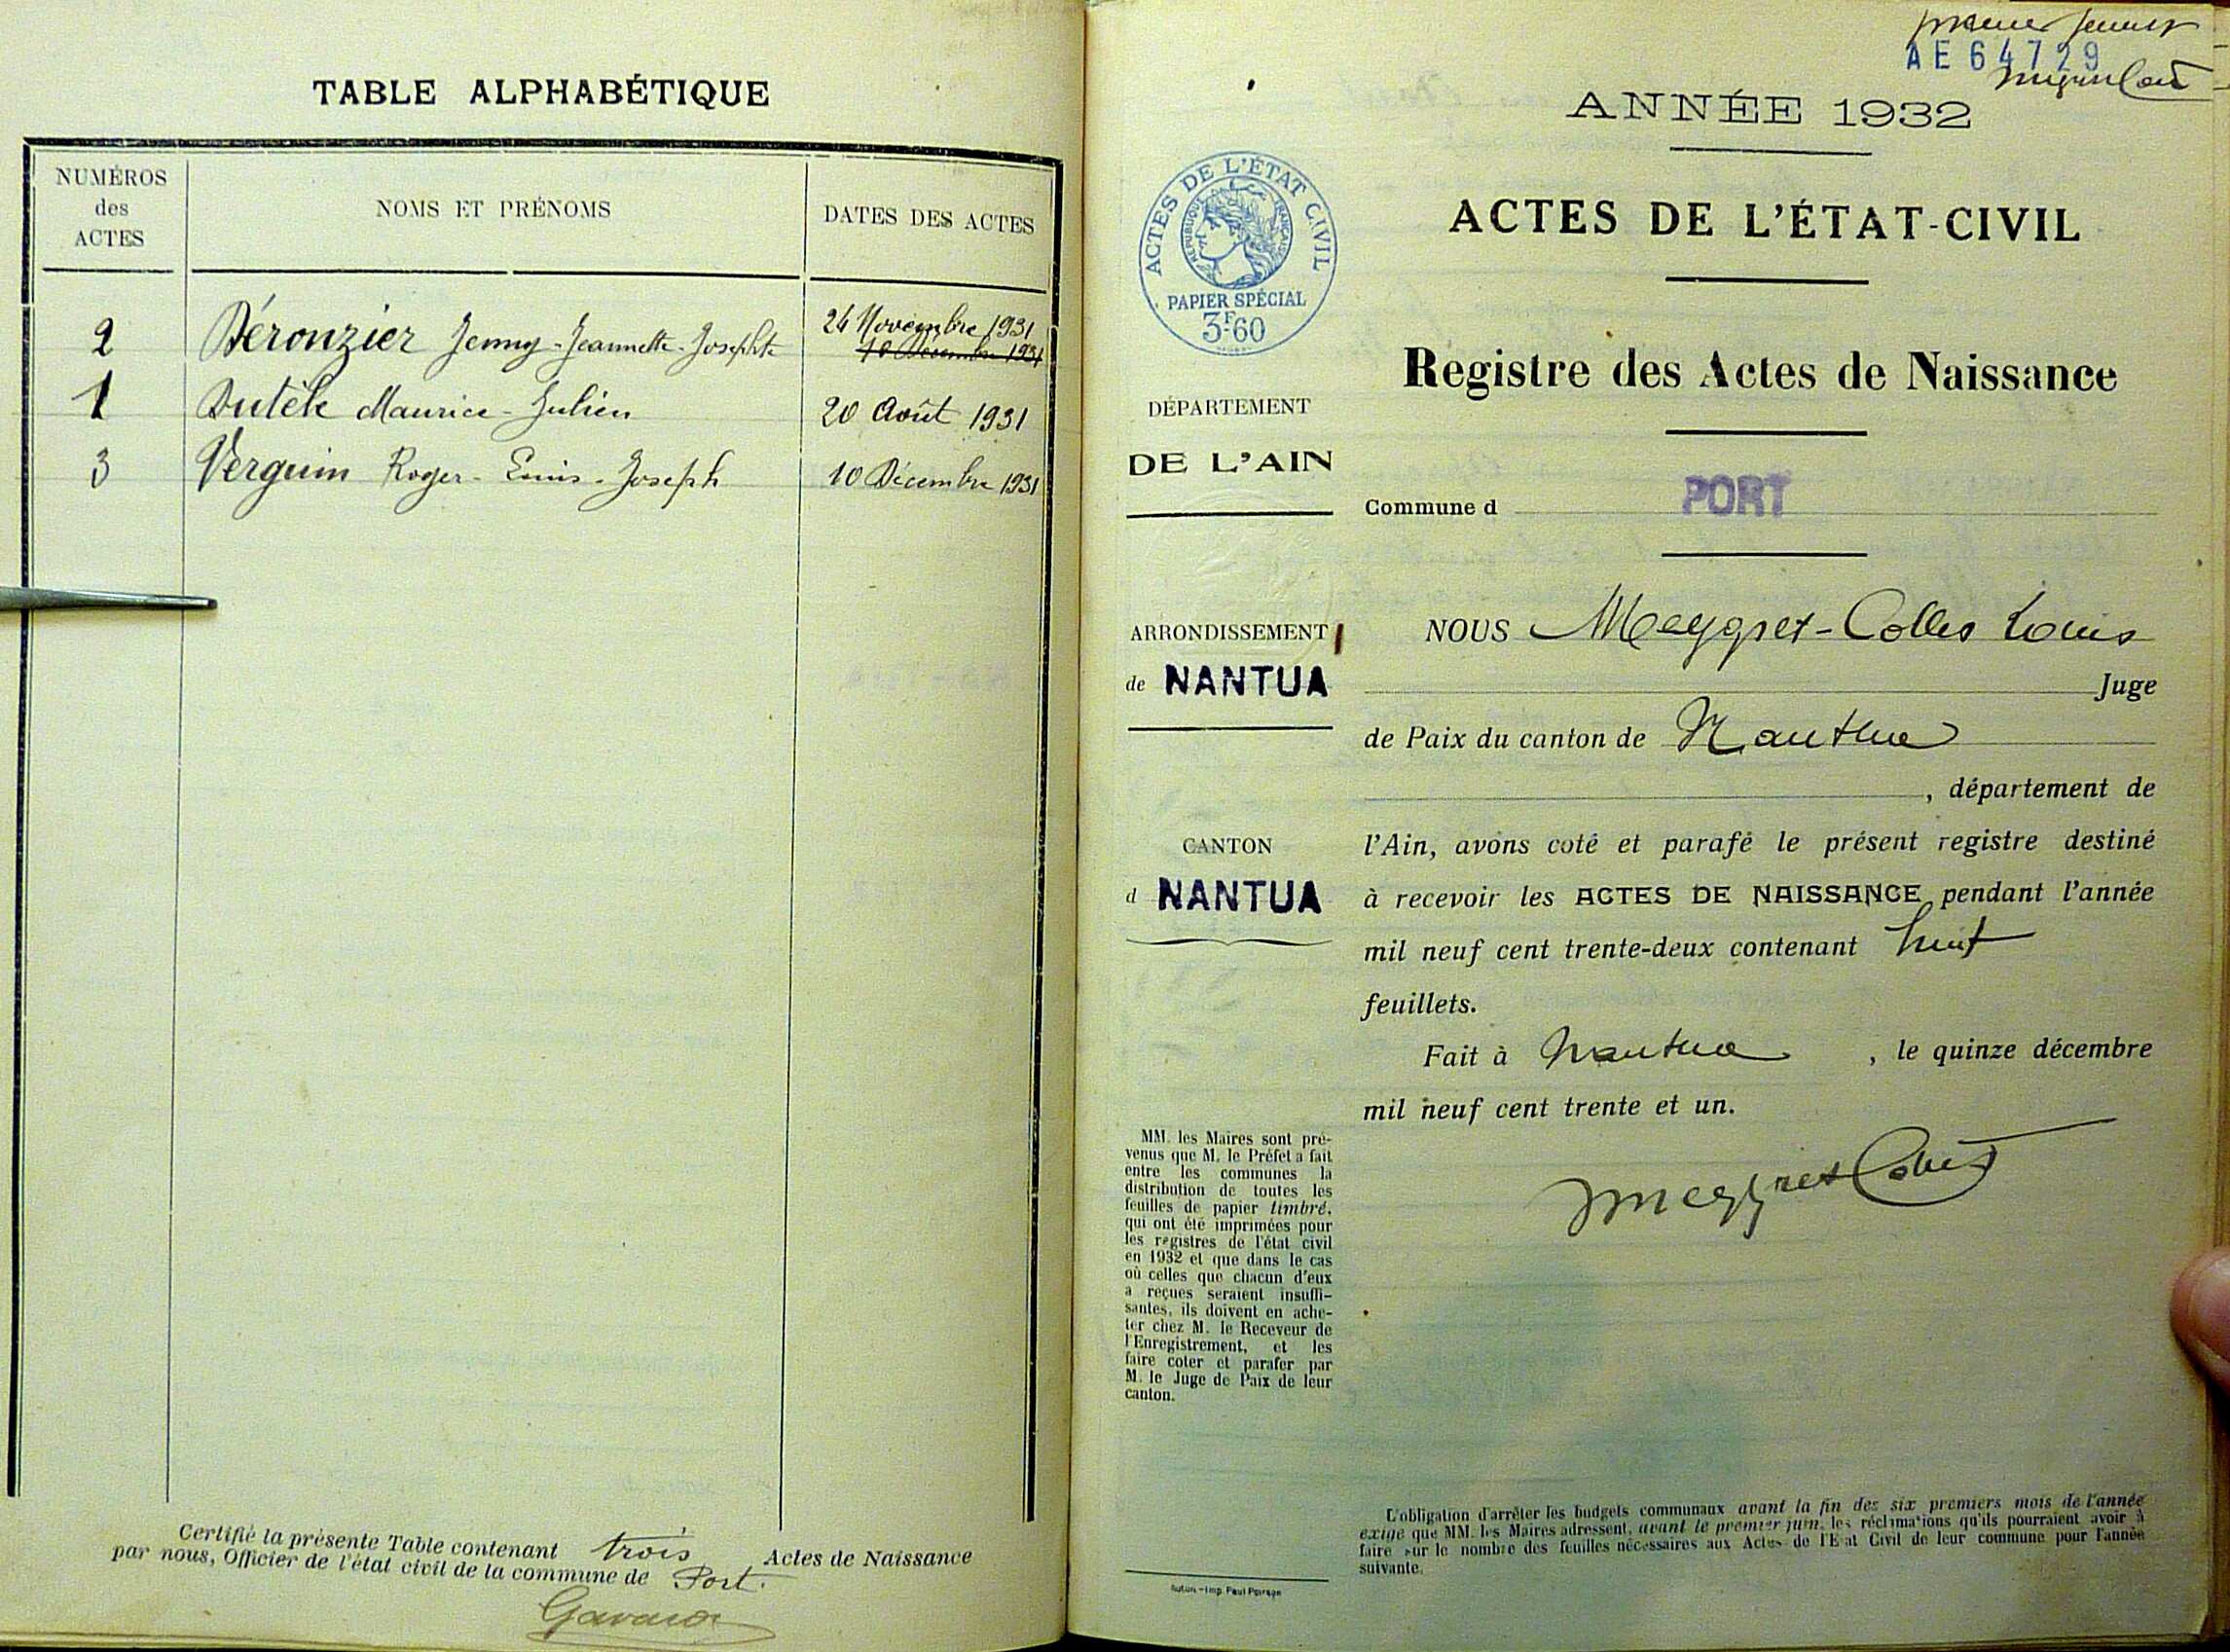 TABLE ALPHABÉTIQUE
NUMÉROS
des
ACTES
NOMS ET PRÉNOMS
DATES DES ACTES
2 Déronzier Jenny-Jeannette-Josephte 24 Novembre 1931
10 Décembre 1931
1 Dutèle Maurice-Julien 20 Août 1931
3 Verguin Roger-Joseph 10 Décembre 1931
Certifié la présente Table contenant trois Actes de Naissance
par nous, Officier de l'état civil de la commune de Port.
premier feuillet
AE 64729
ANNÉE 1932
ACTES DE L'ÉTAT CIVIL
RÉPUBLIQUE FRANÇAISE
PAPIER SPÉCIAL
3F60
ACTES DE L'ÉTAT-CIVIL
Registre des Actes de Naissance
DÉPARTEMENT
DE L'AIN
Commune d PORT
ARRONDISSEMENT
de NANTUA
CANTON
d NANTUA
NOUS Meygret-Collet Louis
Juge
de Paix du canton de Nantua
, département de
l'Ain, avons coté et parafé le présent registre destiné
à recevoir les ACTES DE NAISSANCE pendant l'année
mil neuf cent trente-deux contenant huit
feuillets.
Fait à Nantua, le quinze décembre
mil neuf cent trente et un.
Meygret Collet
MM. les Maires sont pré-
venus que M. le Préfet a fait
entre les communes la
distribution de toutes les
feuilles de papier timbré,
qui ont été imprimées pour
les registres de l'état civil
en 1932 et que dans le cas
où celles que chacun d'eux
a reçues seraient insuffi-
santes, ils doivent en ache-
ter chez M. le Receveur de
l'Enregistrement, et les
faire coter et parafer par
M. le Juge de Paix de leur
canton.
L'obligation d'arrêter les budgets communaux avant la fin des six premiers mois de l'année
exige que MM. les Maires adressent, avant le premier juin, les réclamations qu'ils pourraient avoir à
faire sur le nombre des feuilles nécessaires aux Actes de l'Etat Civil de leur commune pour l'année
suivante.
Imp. Paul